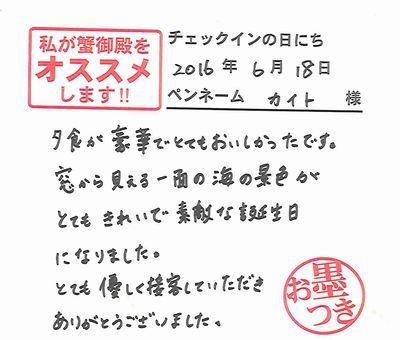 私が蟹御殿を
オススメ
します!!
チェックインの日にち
2016年 6月 18日
ペンネーム カイト 様
夕食が豪華でとてもおいしかったです。
窓から見える一面の海の景色が
とてもきれいで素敵な誕生日
になりました。
とても優しく接客していただき
ありがとうございました。
お墨つき